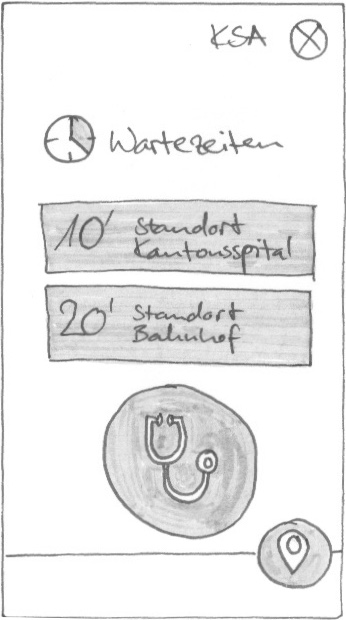 KSA
Wartezeiten
10' Standort
Kantonsspital
20' Standort
Bahnhof